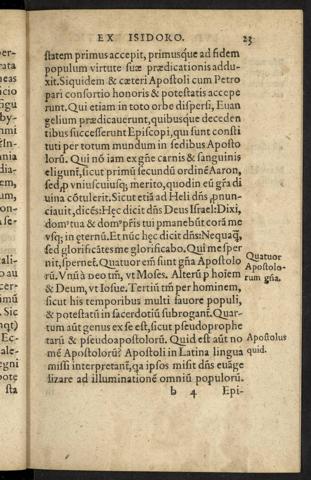 EX ISIDORO. 23
statem primus accepit, primusque ad fidem
populum virtute suæ prædicationis addu-
xit. Siquidem & cæteri Apostoli cum Petro
pari consortio honoris & potestatis accepe
runt. Qui etiam in toto orbe dispersi, Euan
gelium prædicauerunt, quibusque deceden
tibus successerunt Episcopi, qui sunt consti
tuti per totum mundum in sedibus Aposto
lorū. Qui nō iam ex gñe carnis & sanguinis
eligunt̃, sicut primū secundū ordinē Aaron,
sed ꝓ vniuscuiusq; merito, quod in eū gr̃a di
uina cōtulerit. Sicut etiā ad Heli dñs ꝓnun-
ciauit, dicēs: Hęc dicit dñs Deus Israel: Dixi,
domꝰ tua & domꝰ pr̃is tui pmanebūt corā me
vsq; in eternū. Et nūc hęc dicit dñs: Nequaq̃,
sed glorificātes me glorificabo. Qui me sper
nit, spernet̃. Quatuor em̃ sunt gña Apostolo
rū. Vnū à Deo tm̃, vt Moses. Alterū ꝑ hoīem
& Deum, vt Iosue. Tertiū tm̃ per hominem,
sicut his temporibus multi fauore populi,
& potestatū in sacerdotiū subrogant̃. Quar-
tum aūt genus ex se est, sicut pseudoprophe
tarū & pseudoapostolorū. Quid est aūt no
mē Apostolorū? Apostoli in Latina lingua
missi interpretant̃, qa ipsos misit dñs euāge
lizare ad illuminationē omniū populorū.
b 4 Epi-
Quatuor
Apostolo-
rum gña.
Apostolus
quid.